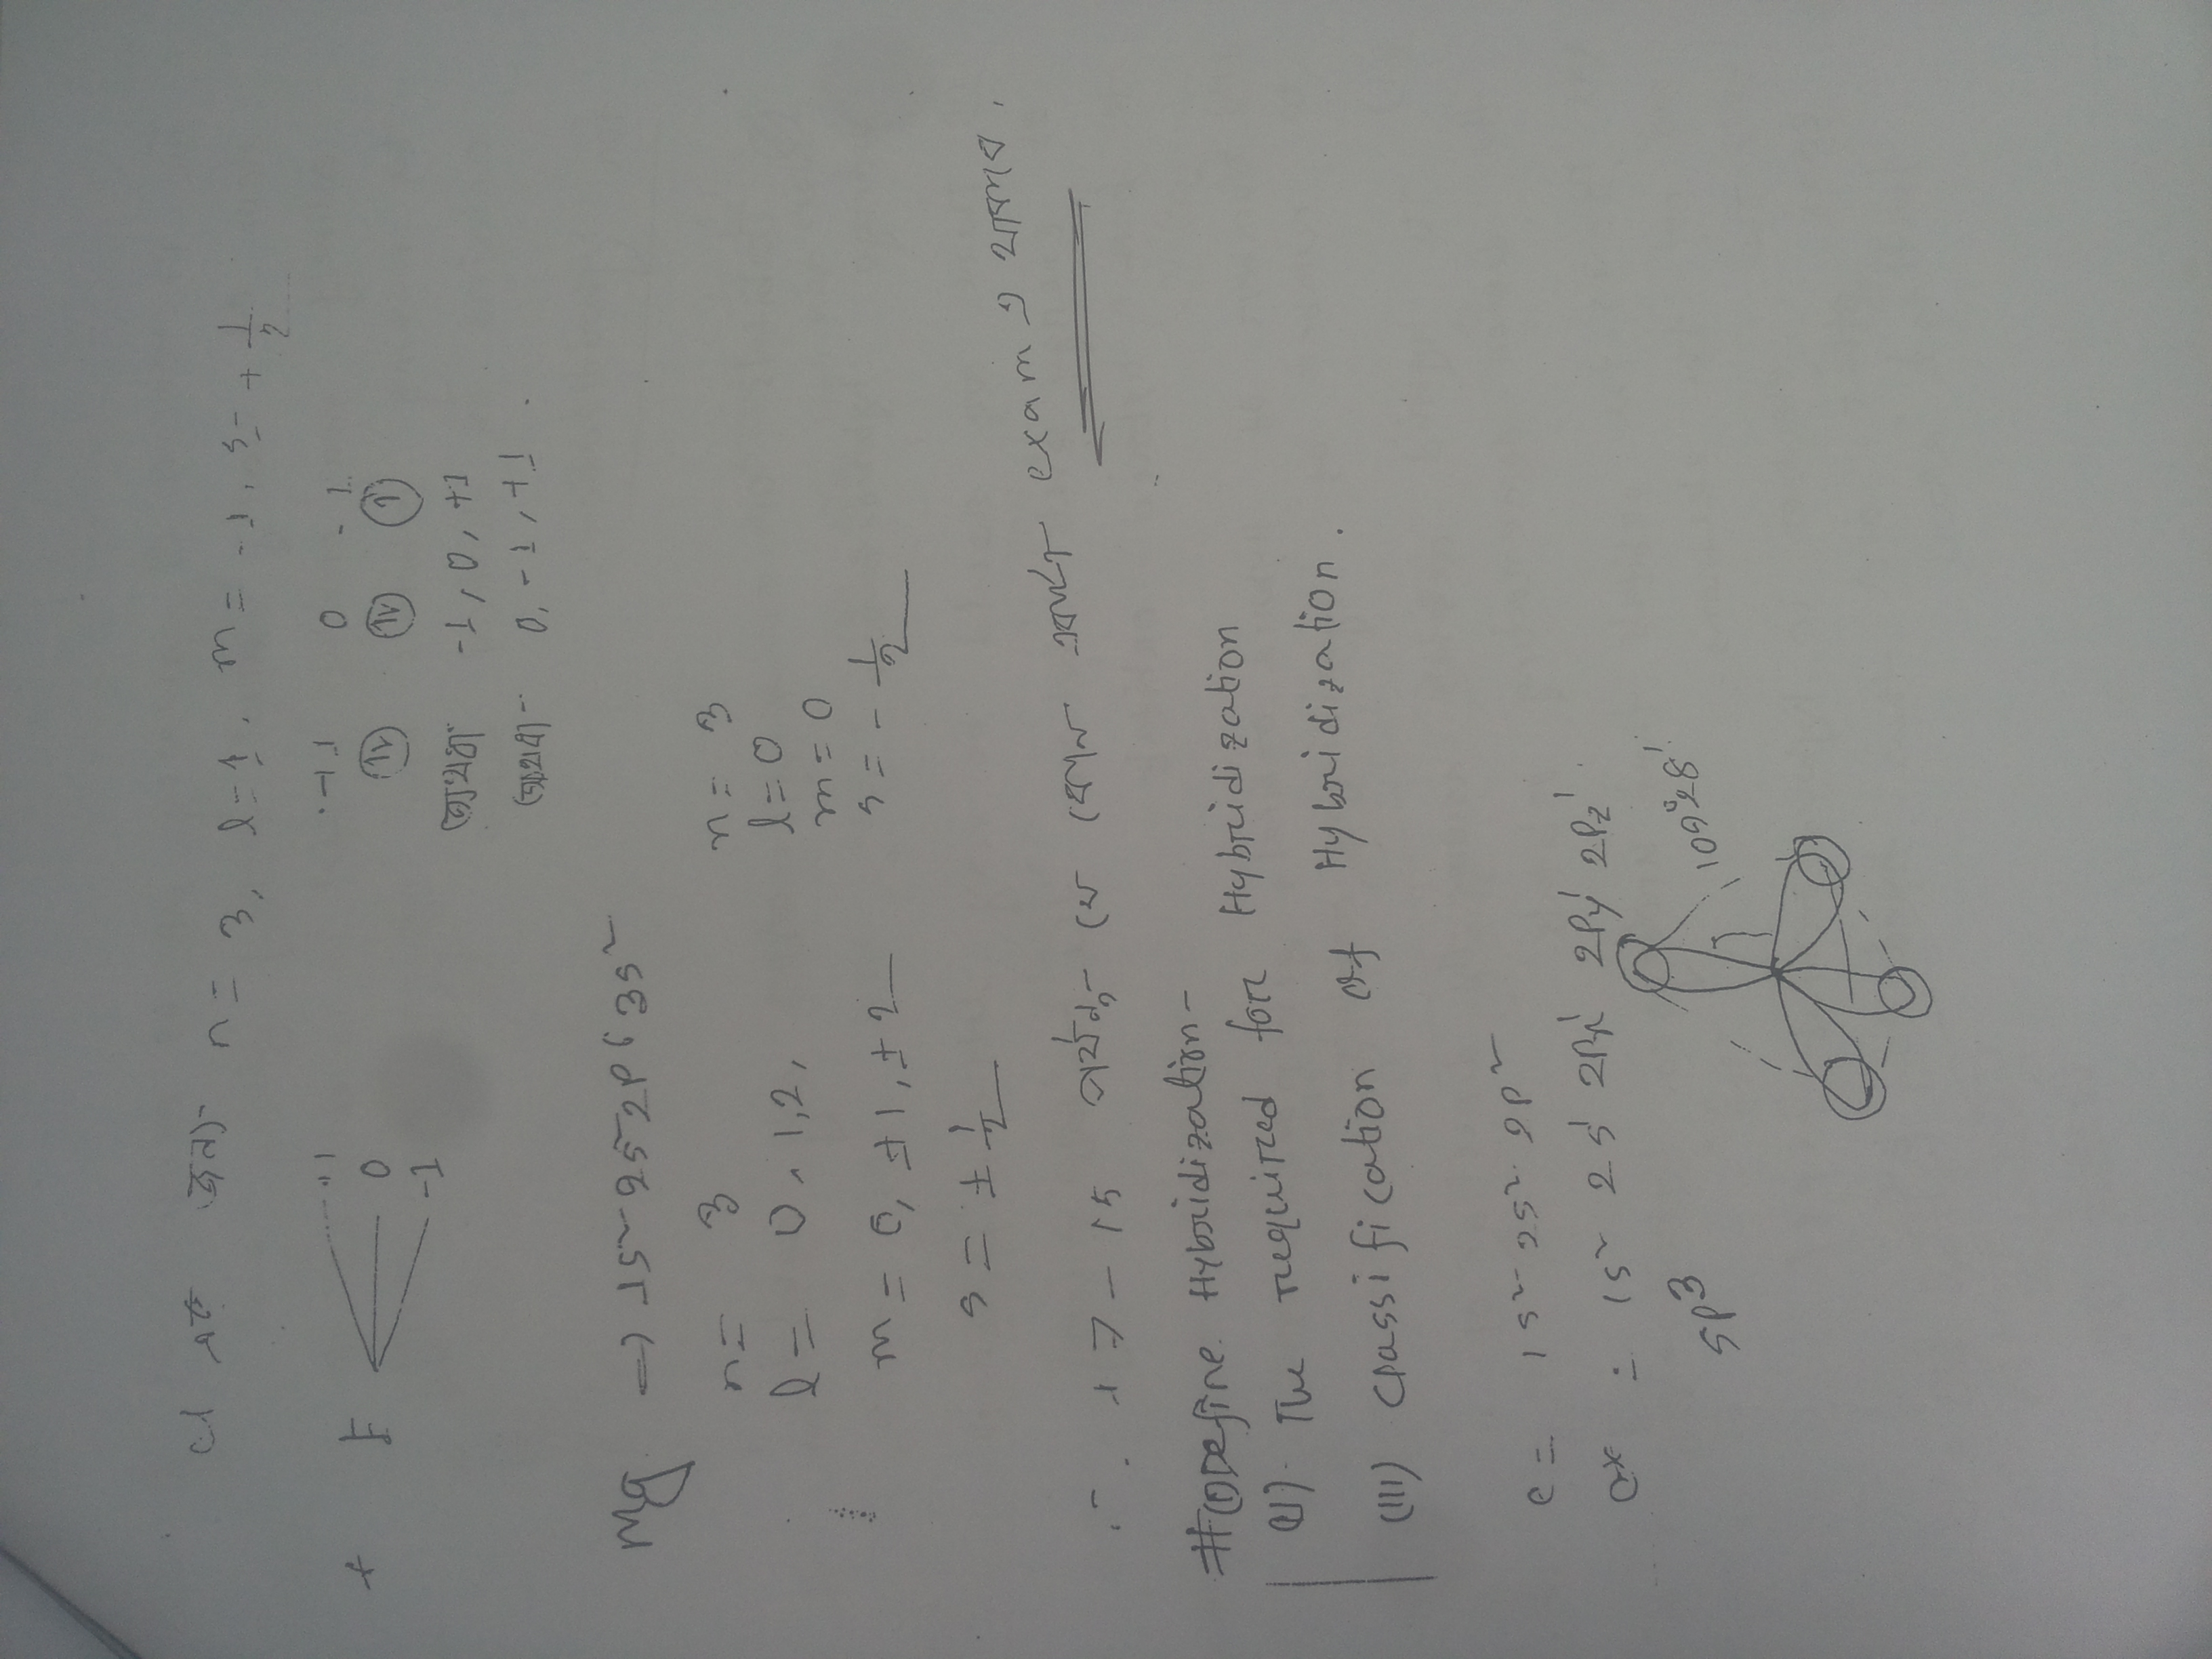 Cl এর জন্য- n = 3, l = 1, m = -1, s = + 1/2
+1
0
-1
+1 0 -1
অথবা -1, 0, +1
অথবা- 0, -1, +1
Mg ⇒ 1s² 2s² 2p⁶ 3s²
n = 3
l = 0, 1, 2,
m = 0, ±1, ±2
s = ± 1/2
n = 3
l = 0
m = 0
s = - 1/2
∴ 7 - 15 পর্যন্ত যে কোন একটা exam এ থাকবে,
# (I) Define Hybridization-
(II). The required for Hybridization
(III) Classification of Hybridization.
C = 1s² 2s² 2p²
C* = 1s² 2s¹ 2Px¹ 2Py¹ 2Pz¹
sp³
109°28'